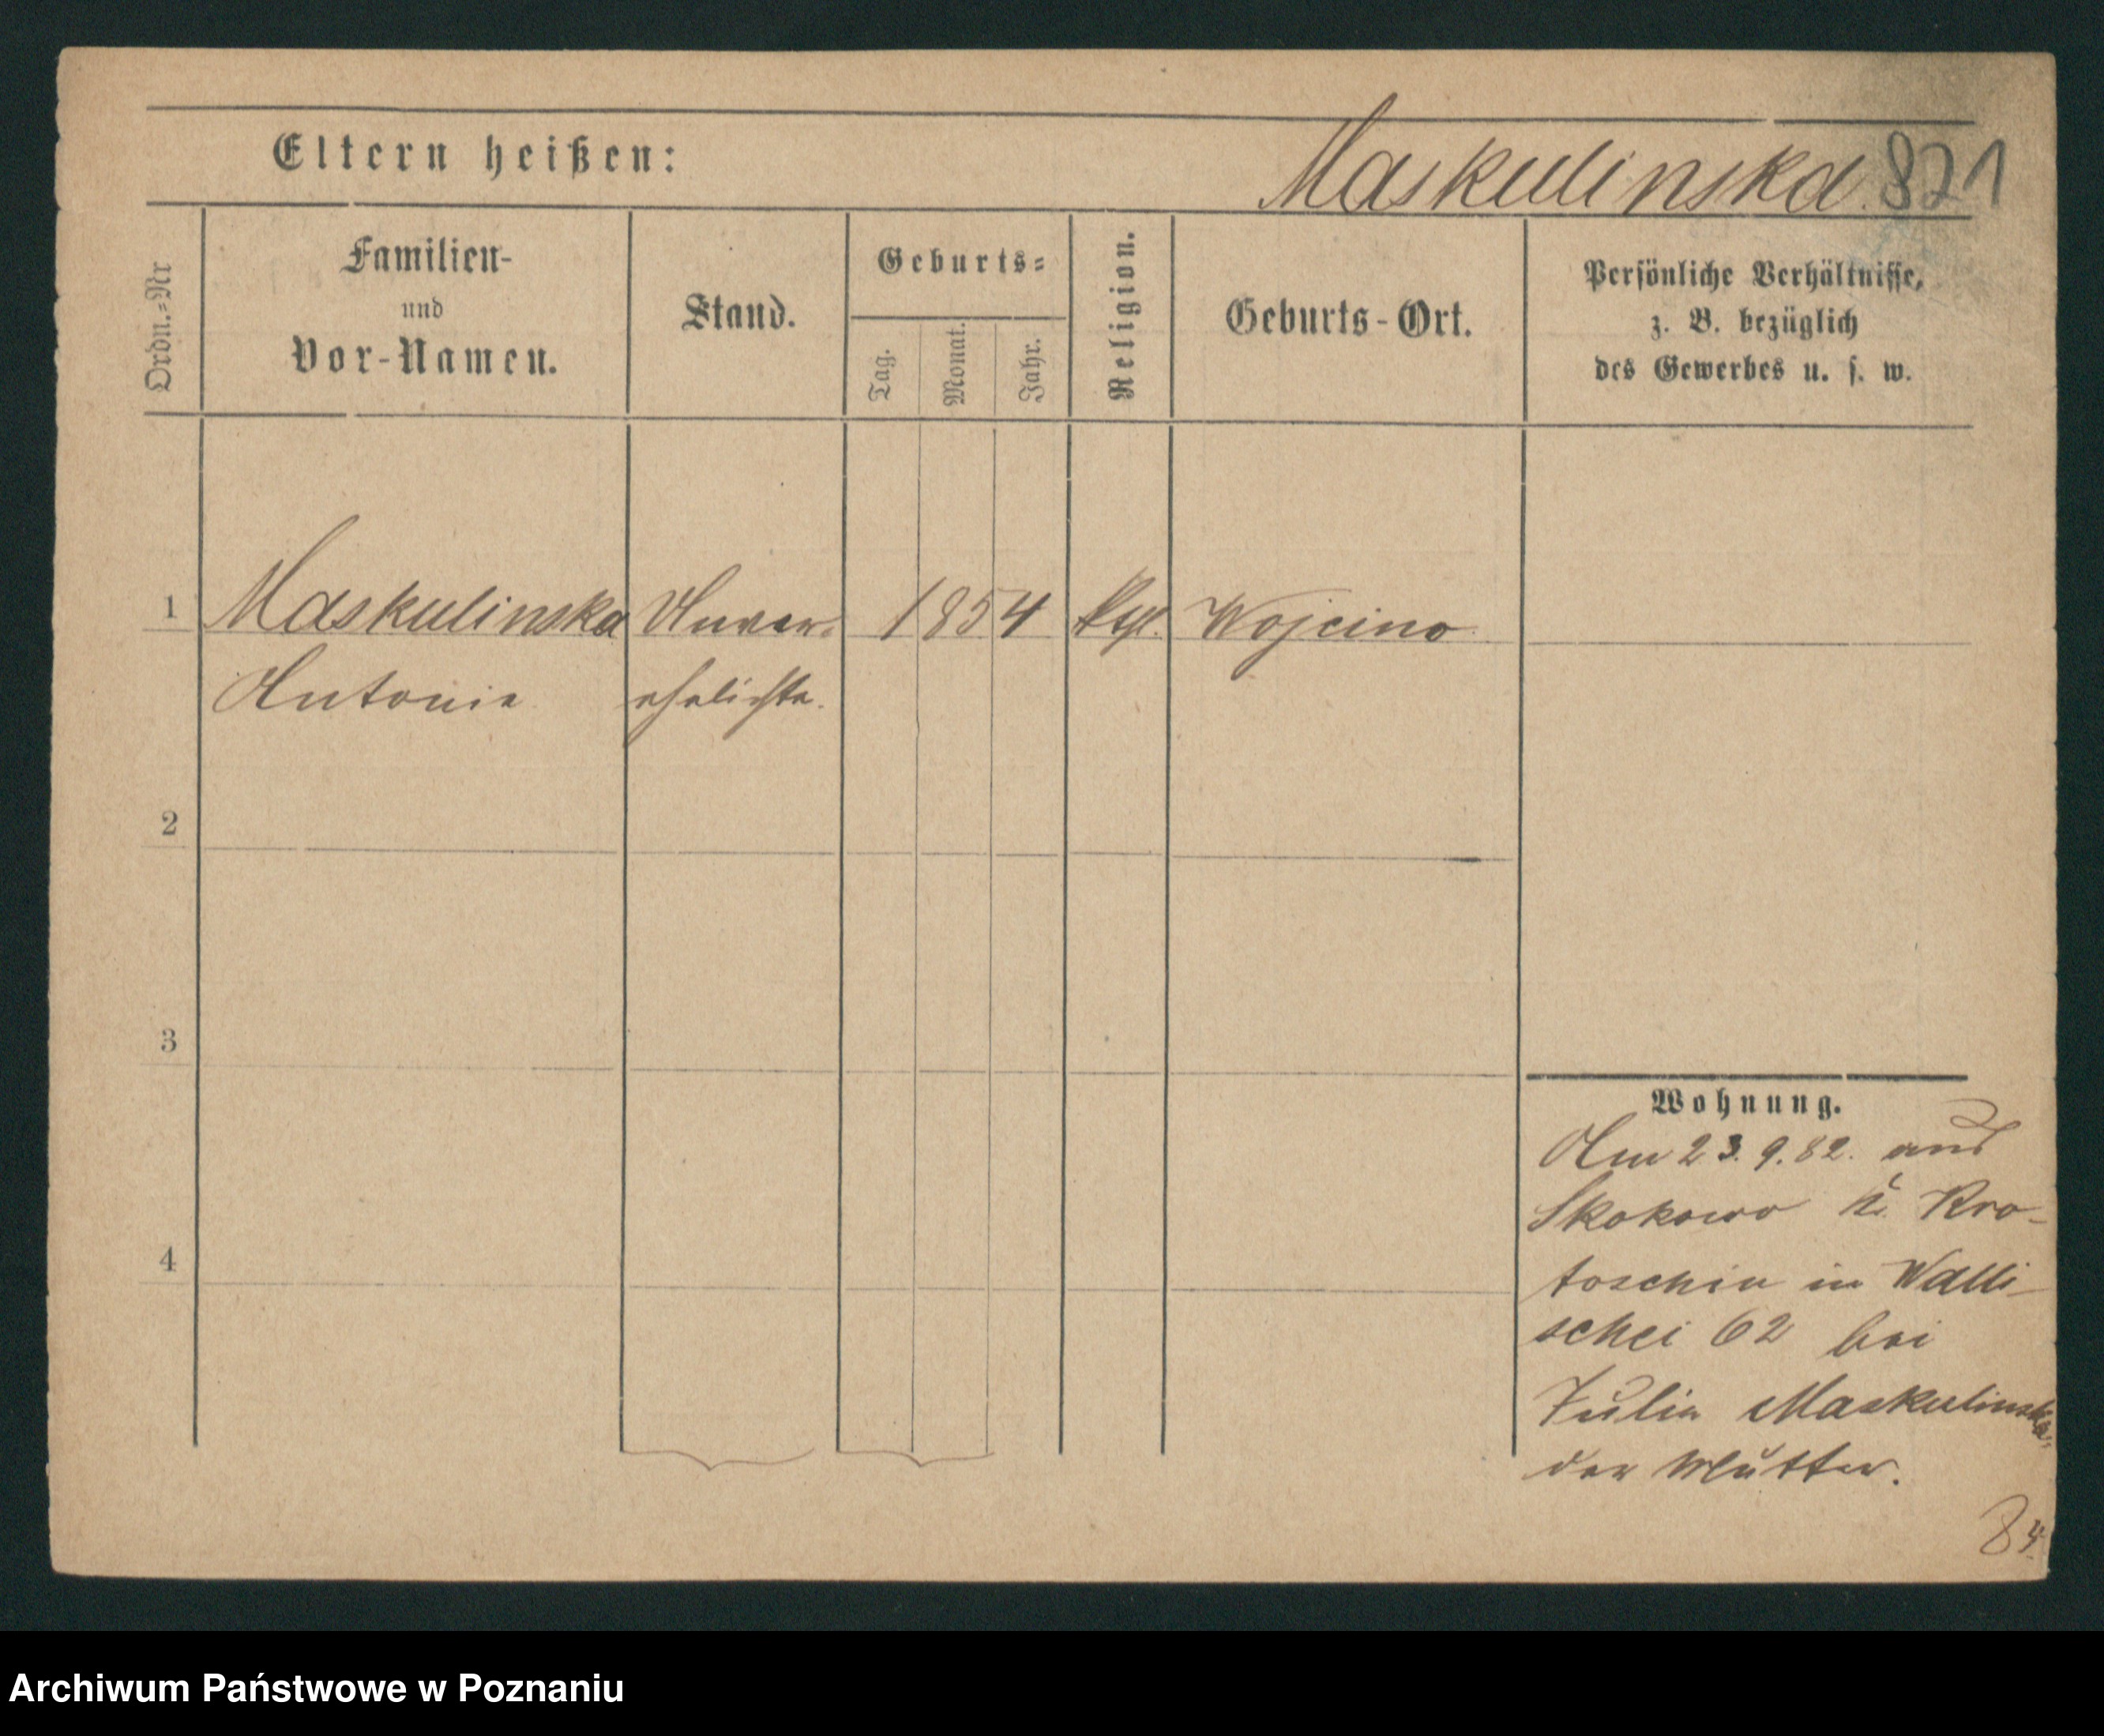 Eltern heißen:
Maskulinska. 821
Ordn.=Nr
Familien-
und
Vor-Namen.
Stand.
Geburts=
Tag.
Monat.
Jahr.
Religion.
Geburts-Ort.
Persönliche Verhältnisse,
z. B. bezüglich
des Gewerbes u. s. w.
1 Maskulinska Unver- 1854 kth. Wojcino
Antonie ehelichte.
2
3
4
Wohnung.
Am 23.9.82. aus
Skokowo Kr. Kro-
toschin in Walli-
schei 62 bei
Julia Maskulinska
der Mutter.
84.
Archiwum Państwowe w Poznaniu